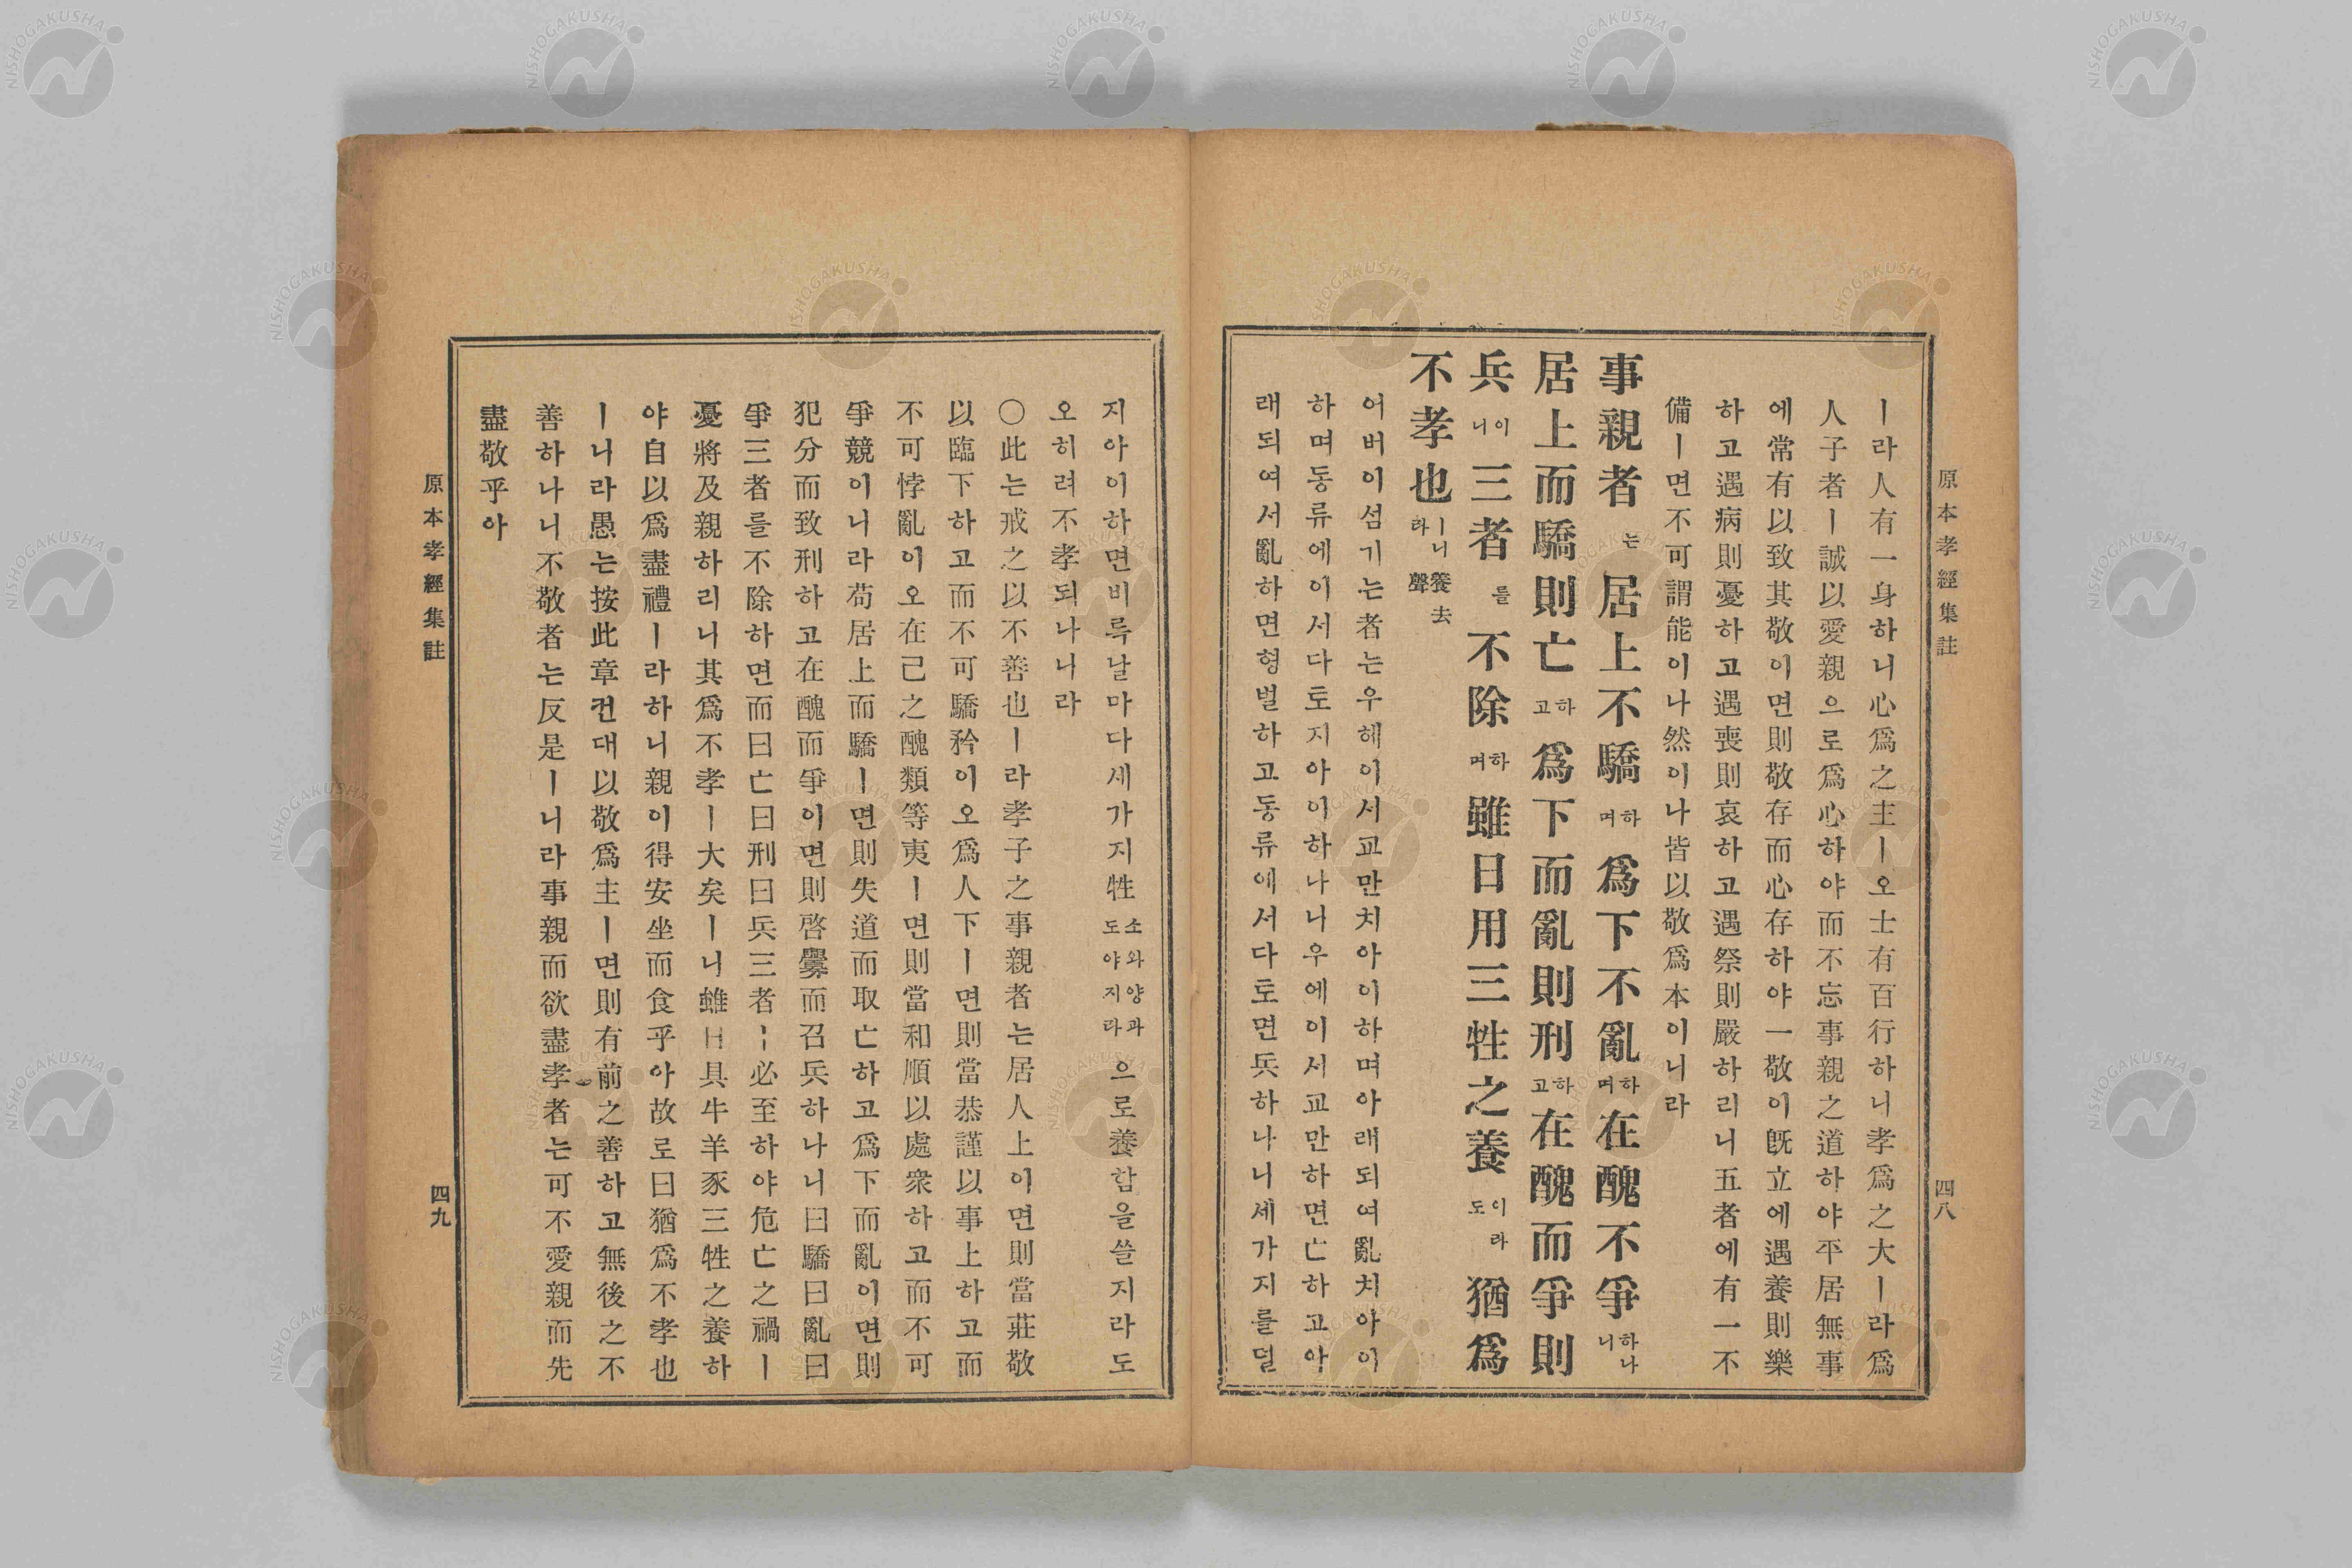 原本孝經集註
四八
ㅣ라人有一身하니心爲之主ㅣ오士有百行하니孝爲之大ㅣ라爲
人子者ㅣ誠以愛親으로爲心하야而不忘事親之道하야平居無事
에常有以致其敬이면則敬存而心存하야一敬이旣立에遇養則樂
하고遇病則憂하고遇喪則哀하고遇祭則嚴하리니五者에有一不
備ㅣ면不可謂能이나然이나皆以敬爲本이니라
事親者는居上不驕하며爲下不亂하며在醜不爭하나니
居上而驕則亡하고爲下而亂則刑하고在醜而爭則
兵이니三者를不除하며雖日用三牲之養이라도猶爲
不孝也ㅣ니라養去聲
어버이섬기는者는우헤이셔교만치아이하며아래되여亂치아이
하며동류에이셔다토지아이하나니우에이셔교만하면亡하고아
래되여서亂하면형벌하고동류에서다토면兵하나니세가지를덜
지아이하면비록날마다세가지牲소와양과도야지라으로養함을쓸지라도
오히려不孝되나니라
〇此는戒之以不善也ㅣ라孝子之事親者는居人上이면則當莊敬
以臨下하고而不可驕矜이오爲人下ㅣ면則當恭謹以事上하고而
不可悖亂이오在己之醜類等夷ㅣ면則當和順以處衆하고而不可
爭競이니라苟居上而驕ㅣ면則失道而取亡하고爲下而亂이면則
犯分而致刑하고在醜而爭이면則啓釁而召兵하나니曰驕曰亂曰
爭三者를不除하면而曰亡曰刑曰兵三者ㅣ必至하야危亡之禍ㅣ
憂將及親하리니其爲不孝ㅣ大矣ㅣ니雖日具牛羊豕三牲之養하
야自以爲盡禮ㅣ라하니親이得安坐而食乎아故로曰猶爲不孝也
ㅣ니라愚는按此章컨대以敬爲主ㅣ면則有前之善하고無後之不
善하나니不敬者는反是ㅣ니라事親而欲盡孝者는可不愛親而先
盡敬乎아
原本孝經集註
四九